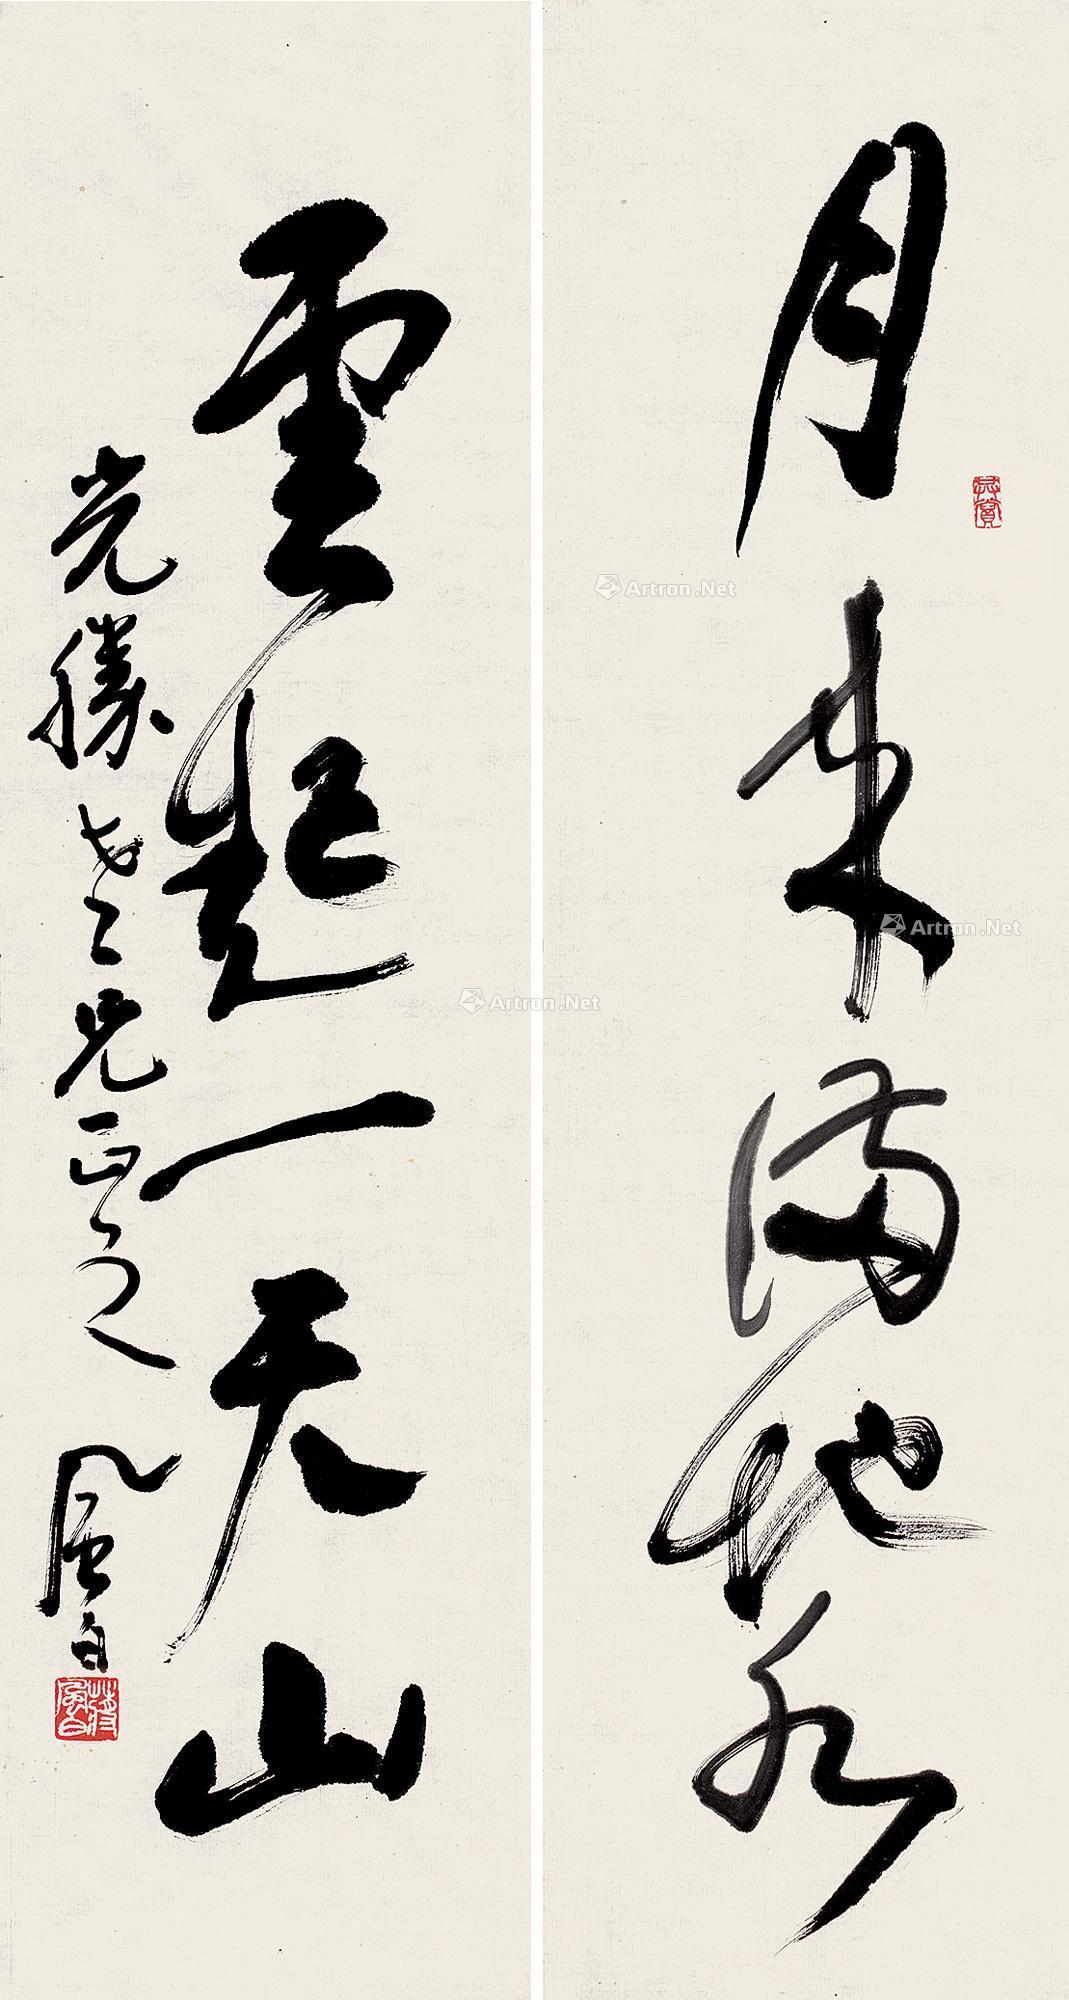 月来满地水
雲起一天山
光勝老兄正之
風白
蒋風白
Artron.Net
Artron.Net
Artron.Net